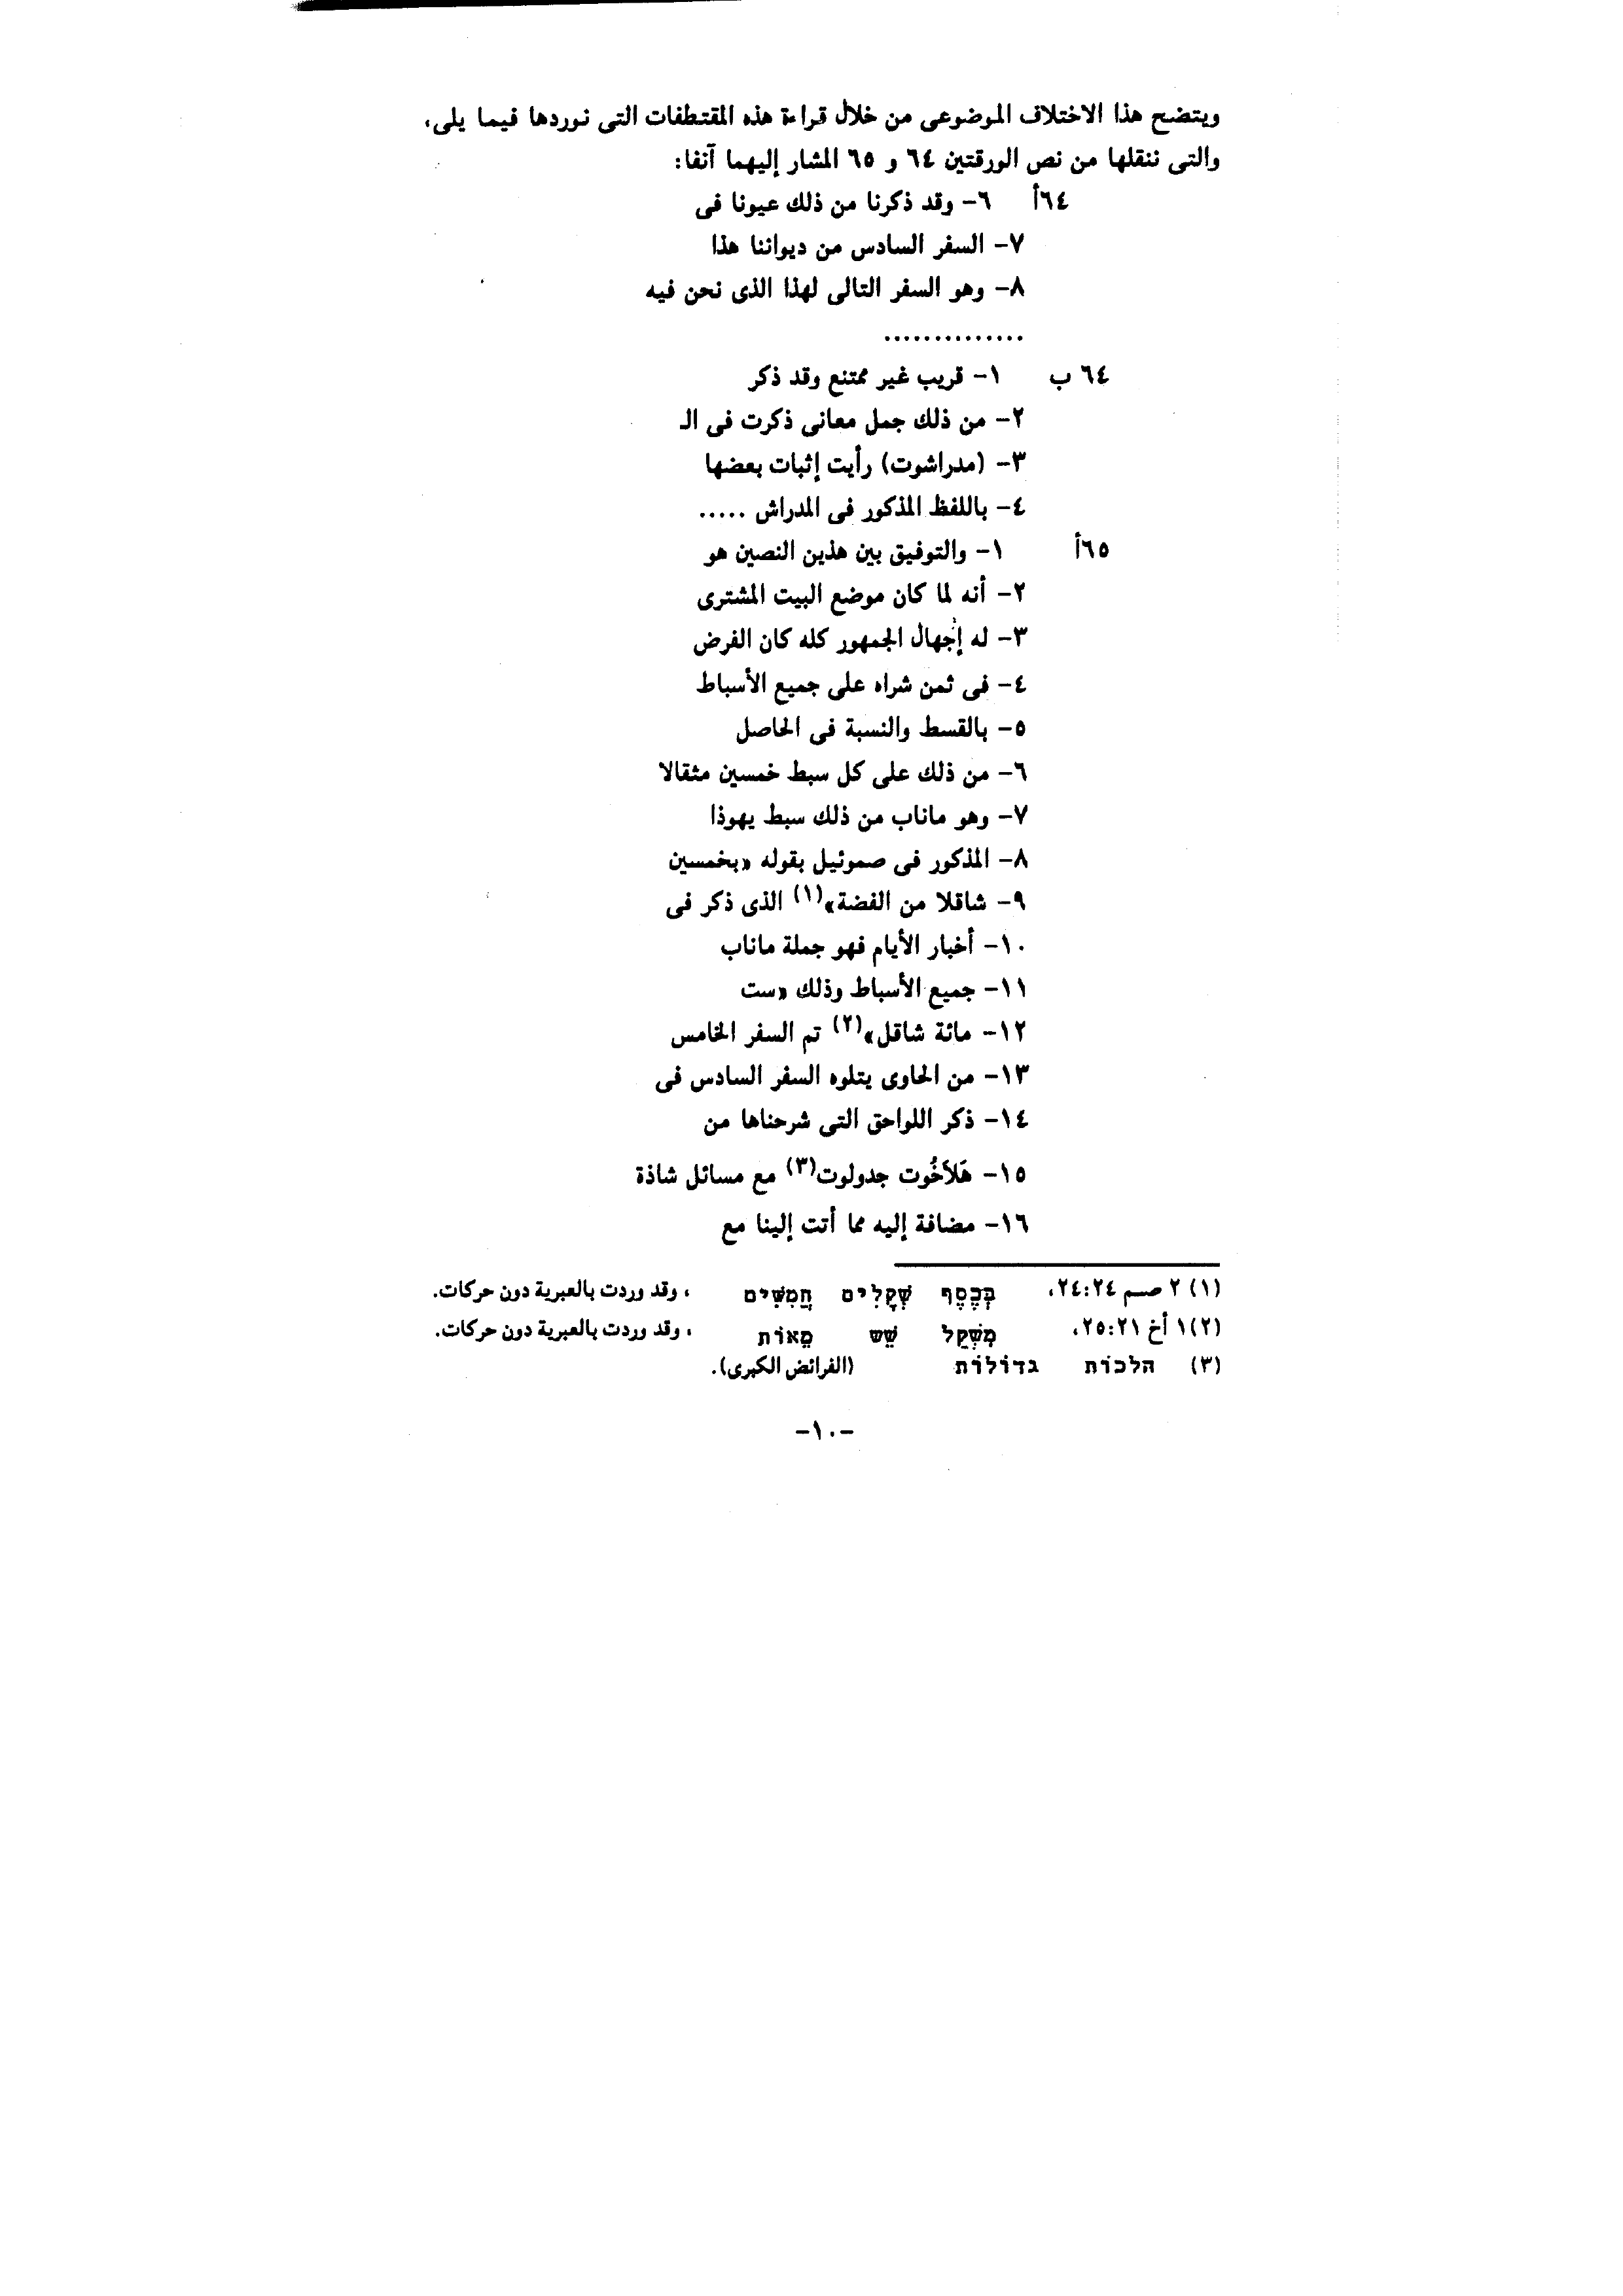 ويتضح هذا الاختلاف الموضوعى من خلال قراءة هذه المقتطفات التى نوردها فيما يلى،
والتى ننقلها من نص الورقتين ٦٤ و ٦٥ المشار إليهما آنفا:
٦٤أ ٦- وقد ذكرنا من ذلك عيونا فى
٧- السفر السادس من ديواننا هذا
٨- وهو السفر التالى لهذا الذى نحن فيه
..............
٦٤ ب ١- قريب غير ممتنع وقد ذكر
٢- من ذلك جمل معانى ذكرت فى الـ
٣- (مدراشوت) رأيت إثبات بعضها
٤- باللفظ المذكور فى المدراش .....
٦٥أ ١- والتوفيق بين هذين النصين هو
٢- أنه لما كان موضع البيت المشترى
٣- له إجهال الجمهور كله كان الفرض
٤- فى ثمن شراه على جميع الأسباط
٥- بالقسط والنسبة فى الحاصل
٦- من ذلك على كل سبط خمسين مثقالا
٧- وهو ماناب من ذلك سبط يهوذا
٨- المذكور فى صموئيل بقوله «بخمسين
٩- شاقلا من الفضة»(١) الذى ذكر فى
١٠- أخبار الأيام فهو جملة ماناب
١١- جميع الأسباط وذلك «ست
١٢- مائة شاقل»(٢) تم السفر الخامس
١٣- من الحاوى يتلوه السفر السادس فى
١٤- ذكر اللواحق التى شرحناها من
١٥- هَلاَخُوت جدولوت(٣) مع مسائل شاذة
١٦- مضافة إليه مما أتت إلينا مع
(١) ٢ صم ٢٤:٢٤، בְּכֶסֶף שְׁקָלִים חֲמִשִּׁים ، وقد وردت بالعبرية دون حركات.
(٢)١ أخ ٢٥:٢١، מִשְׁקָל שֵׁשׁ מֵאוֹת ، وقد وردت بالعبرية دون حركات.
(٣) הלכוֹת גדוֹלוֹת (الفرائض الكبرى).
-١٠-